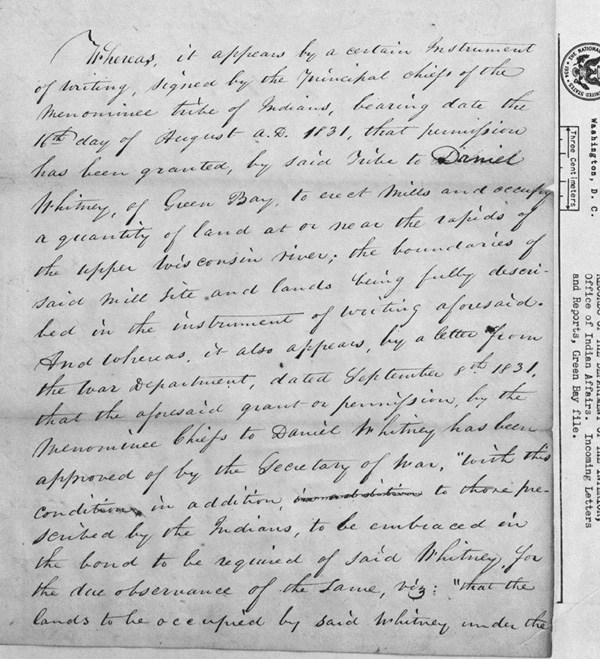 Whereas, it appears by a certain Instrument
of writing, signed by the Principal Chiefs of the
Menominee tribe of Indians, bearing date the
16th day of August A.D. 1831, that permission
has been granted, by said Tribe to Daniel
Whitney, of Green Bay, to erect Mills and occupy
a quantity of land at or near the rapids of
the upper Wisconsin river; the boundaries of
said Mill Site and lands being fully descri-
bed in the instrument of writing aforesaid.
And whereas, it also appears, by a letter from
the War Department, dated September 8th 1831,
that the aforesaid grant or permission, by the
Menominee Chiefs to Daniel Whitney has been
approved of by the Secretary of War, "with this
condition, in addition, to those pre-
scribed by the Indians, to be embraced in
the bond to be required of said Whitney, for
the due observance of the same, viz: "that the
lands to be occupied by said Whitney under the
THE NATIONAL
UNITED STATES
Washington, D. C.
Three Centimeters
RECORDS OF THE DEPARTMENT OF THE INTERIOR,
Office of Indian Affairs. Incoming Letters
and Reports, Green Bay file.